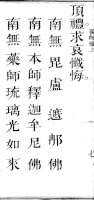 頂禮求哀懺悔。
南無毘盧遮那佛
南無本師釋迦牟尼佛
南無藥師琉璃光如來